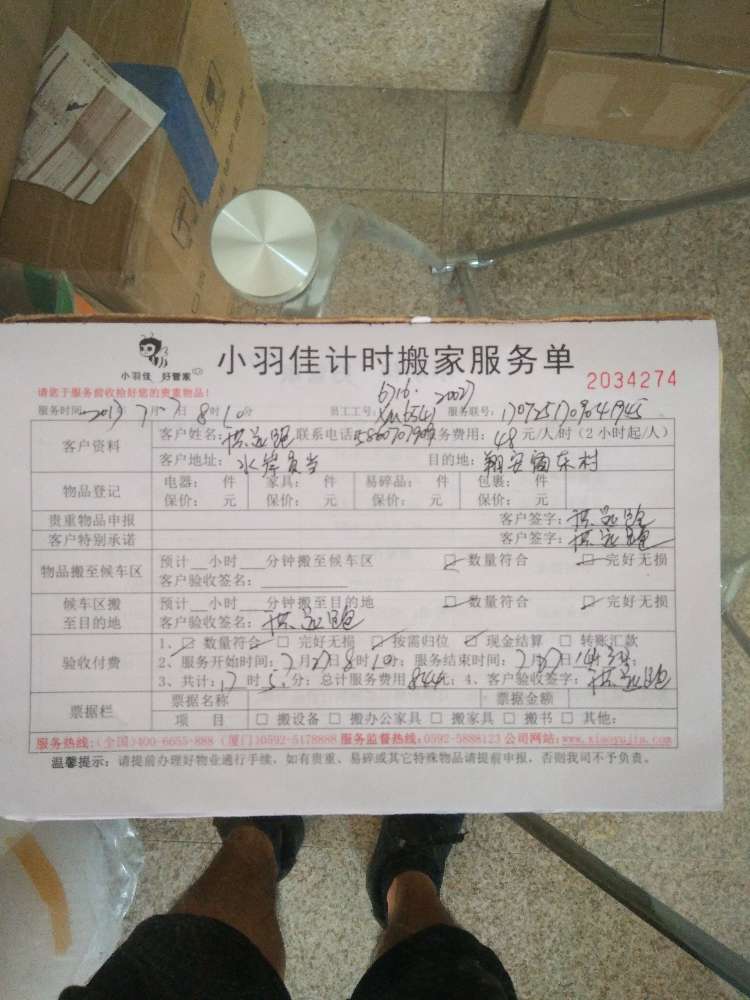 小羽佳 好管家
小羽佳计时搬家服务单
2034274
请您于服务前收拾好您的贵重物品!
服务时间: 2017 7月27日8时10分 员工工号: 服务联号: 1707251709041945
客户资料
客户姓名: 联系电话: 服务费用: 48元/人/时(2小时起/人)
客户地址: 水岸 目的地: 翔安 东村
物品登记
电器: 件 家具: 件 易碎品: 件 包裹: 件
保价: 元 保价: 元 保价: 元 保价: 元
贵重物品申报 客户签字:
客户特别承诺 客户签字:
物品搬至候车区
预计__小时___分钟搬至候车区 数量符合 完好无损
客户验收签名:
候车区搬至目的地
预计__小时___分钟搬至目的地 数量符合 完好无损
客户验收签名:
验收付费
1、 数量符合 完好无损 按需归位 现金结算 转账汇款
2、服务开始时间: 7月27日8时10分; 服务结束时间: 7月27日14时 分;
3、共计: 时 分; 总计服务费用844元; 4、客户验收签字:
票据栏
票据名称 票据金额
项目 搬设备 搬办公家具 搬家具 搬书 其他:
服务热线:(全国)400-6655-888 (厦门)0592-5178888 服务监督热线:0592-5888123 公司网站:www.xiaoyujia.com
温馨提示: 请提前办理好物业通行手续, 如有贵重、易碎或其它特殊物品请提前申报, 否则我司不予负责。